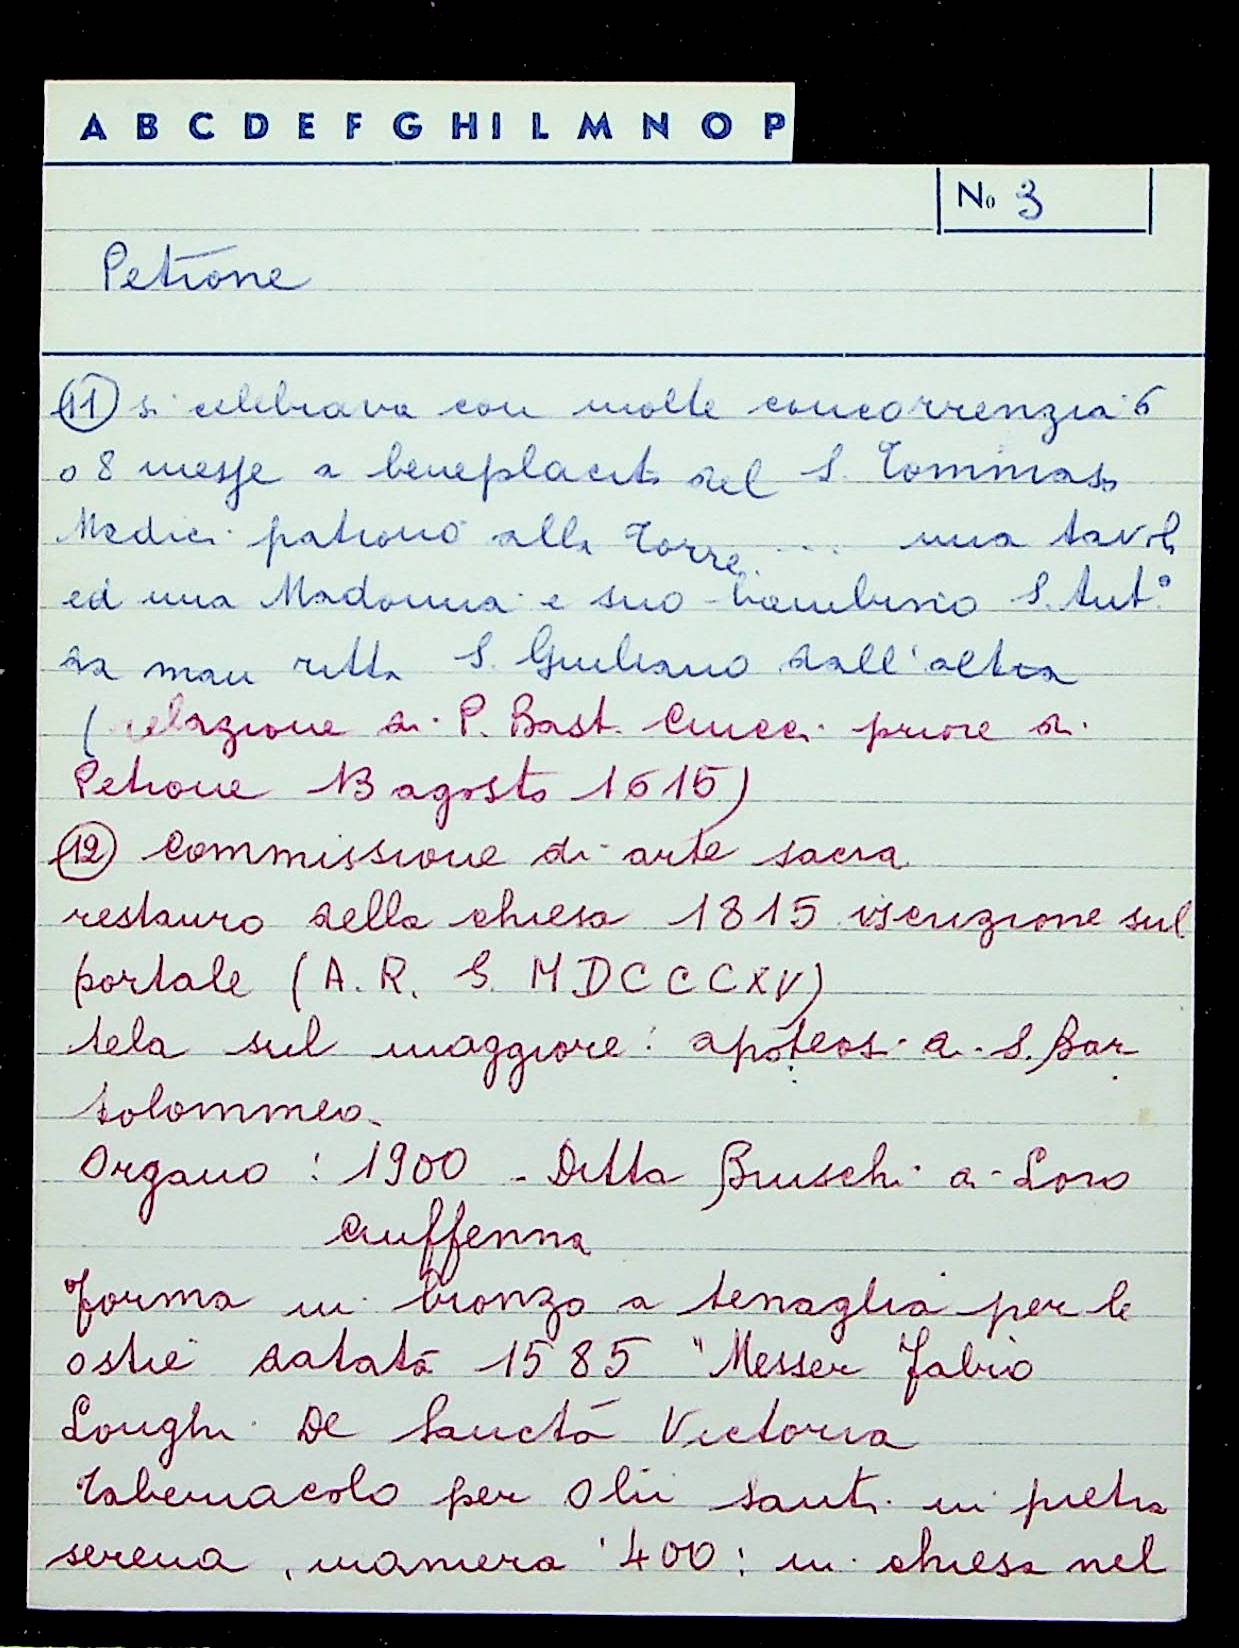 A B C D E F G H I L M N O P
No 3
Petrone
11 si celebrava con molte concorrenzia 6
o 8 messe a beneplacito del S. Tommaso
Medici patrono alla Torre .... una tavola
ed una Madonna e suo bambino S. Ant.°
da man ritta S. Giuliano dall'altra
(relazione di P. Bast. Cucci priore di
Petrone 13 agosto 1615)
12 Commissione di arte sacra
restauro della chiesa 1815 iscrizione sul
portale (A. R. S. MDCCCXV)
tela sul maggiore: apoteosi di S. Bar
tolommeo.
Organo: 1900 - Ditta Bruschi di Loro
Ciuffenna
Forma in bronzo a tenaglia per le
ostie datata 1585 "Messer Fabio
Longhi De Sancta Victoria
Tabernacolo per Olii santi in pietra
serena, maniera '400: in chiesa nel